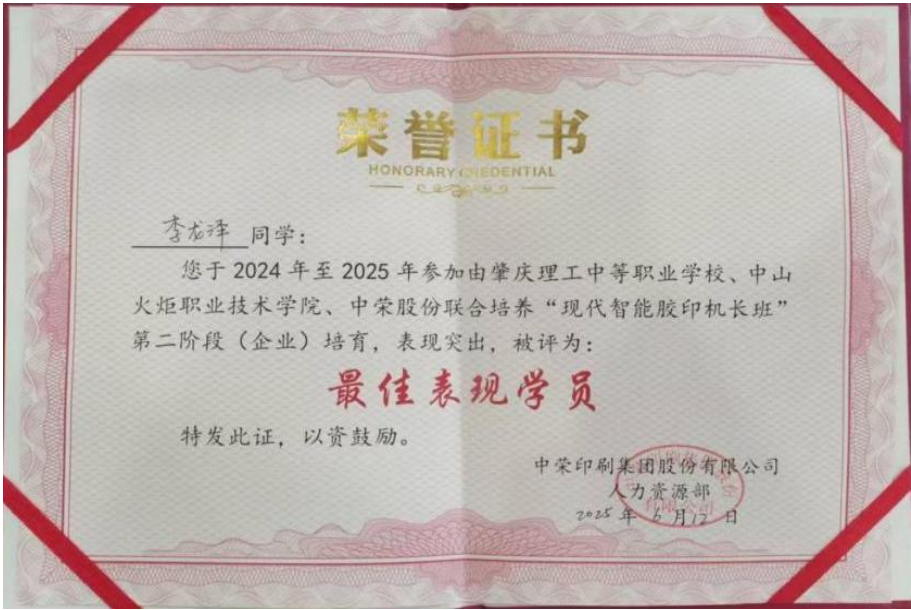 荣誉证书
HONORARY CREDENTIAL
李龙泽 同学：
您于 2024 年至 2025 年参加由肇庆理工中等职业学校、中山
火炬职业技术学院、中荣股份联合培养“现代智能胶印机长班”
第二阶段（企业）培育，表现突出，被评为：
最佳表现学员
特发此证，以资鼓励。
中荣印刷集团股份有限公司
人力资源部
2025 年 6 月 12 日